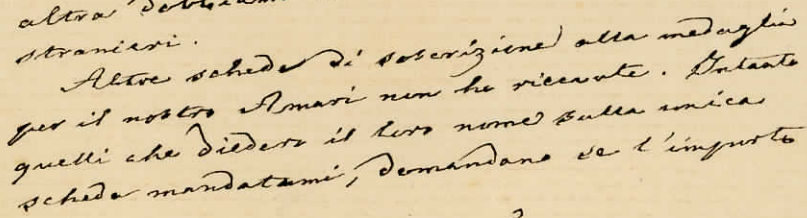 altra dobbiamo
stranieri.
Altre schede di soscrizione alla medaglia
per il nostro Amari non ho ricevute. Intanto
quelli che diedero il loro nome sulla unica
scheda mandatami, domandano se l'importo